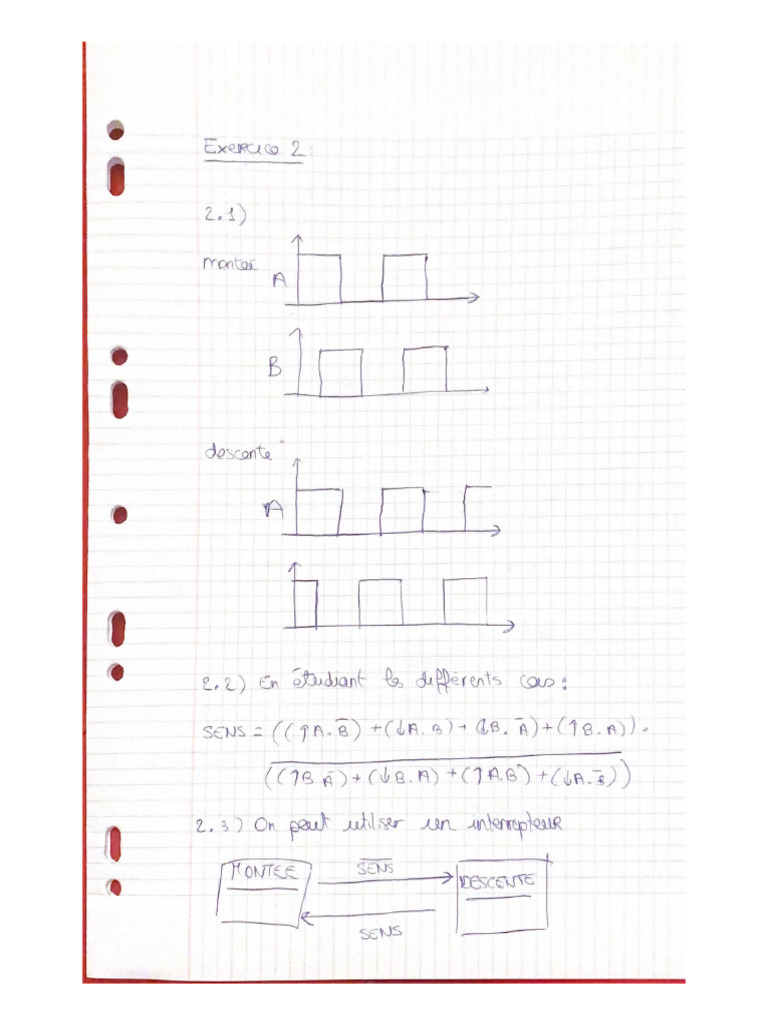 Exercice 2:
2.1)
montée
A
B
descente
A
2.2) En étudiant les différents cas:
SENS = ((↑A.B̅) + (↓A.B) + (↓B.A̅) + (↑B.A)).
((↑B.A̅) + (↓B.A) + (↑A.B) + (↓A.B̅))
2.3) On peut utiliser un interrupteur
MONTEE
S̅E̅N̅S̅
DESCENTE
SENS